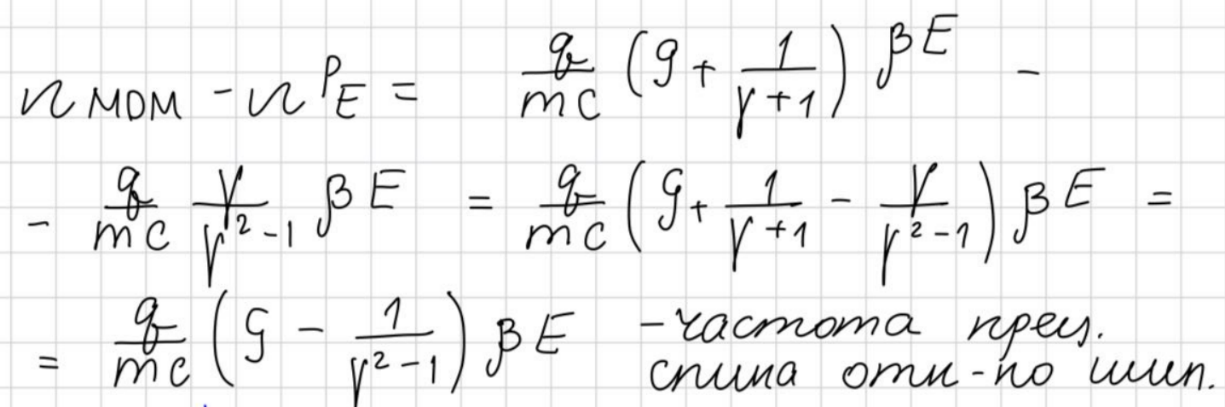 ΩMDM - Ω^P_E = q/mc (G + 1/(γ+1)) βE -
- q/mc γ/(γ²-1) βE = q/mc (G + 1/(γ+1) - γ/(γ²-1)) βE =
= q/mc (G - 1/(γ²-1)) βE - частота прец. спина отн-но имп.